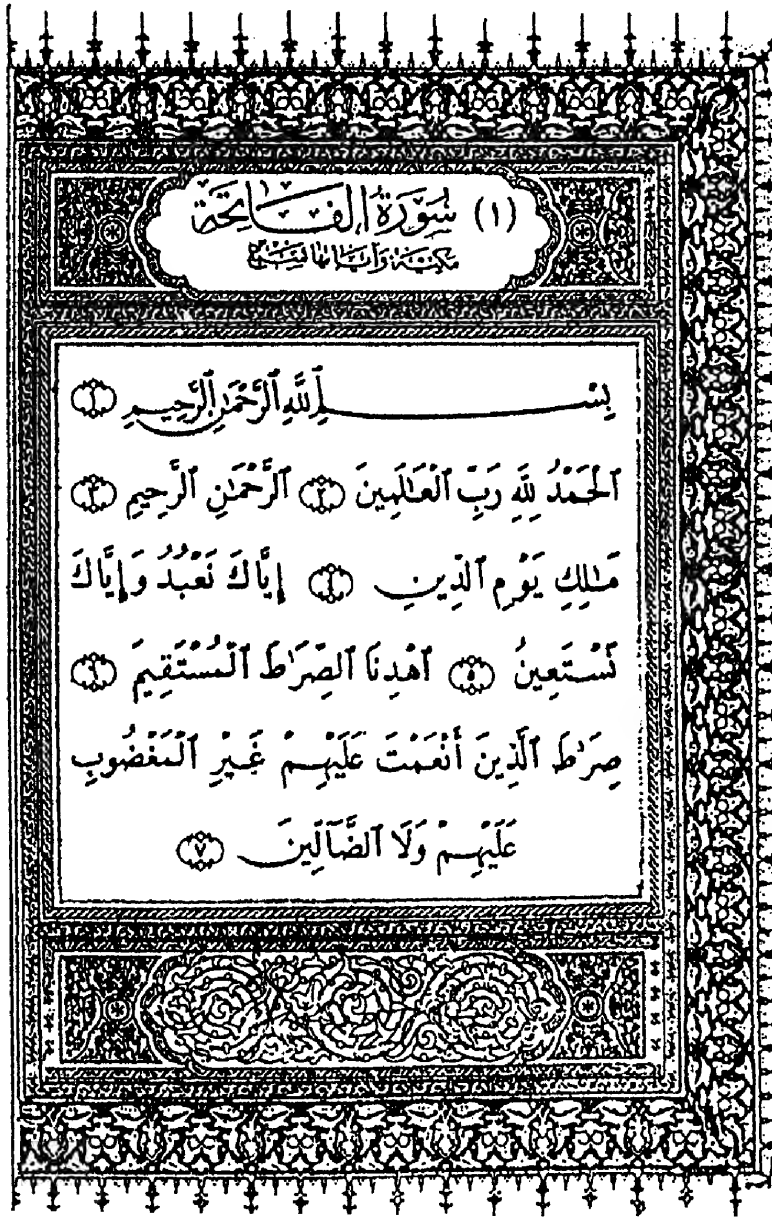 (١) سُورَةُ الفَاتِحَة
مكيّة وَآيَاتهَا سَبْع
بِسْمِ ٱللَّهِ ٱلرَّحْمَٰنِ ٱلرَّحِيمِ ١
ٱلْحَمْدُ لِلَّهِ رَبِّ ٱلْعَٰلَمِينَ ٢ ٱلرَّحْمَٰنِ ٱلرَّحِيمِ ٣
مَٰلِكِ يَوْمِ ٱلدِّينِ ٤ إِيَّاكَ نَعْبُدُ وَإِيَّاكَ
نَسْتَعِينُ ٥ ٱهْدِنَا ٱلصِّرَٰطَ ٱلْمُسْتَقِيمَ ٦
صِرَٰطَ ٱلَّذِينَ أَنْعَمْتَ عَلَيْهِمْ غَيْرِ ٱلْمَغْضُوبِ
عَلَيْهِمْ وَلَا ٱلضَّآلِّينَ ٧